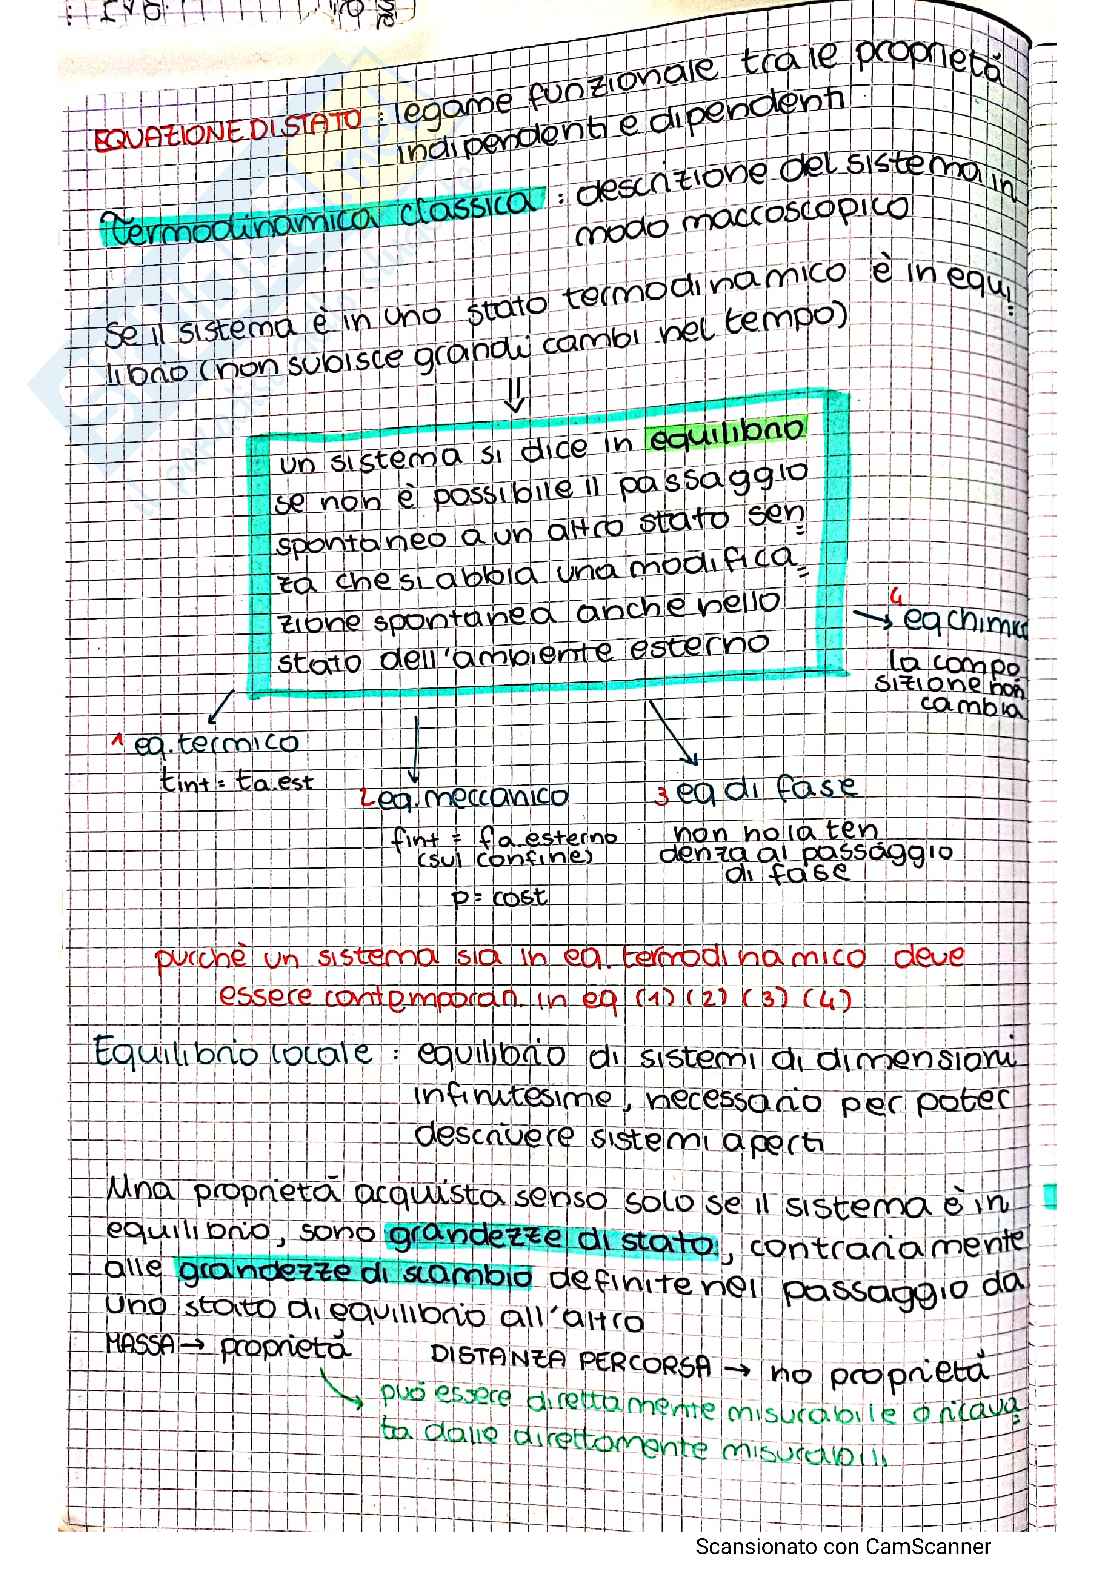 EQUAZIONE DI STATO : legame funzionale tra le proprietà
indipendenti e dipendenti
Termodinamica classica : descrizione del sistema in
modo maccoscopico
Se il sistema è in uno stato termodinamico è in equi
librio (non subisce grandi cambi nel tempo)
⇓
un sistema si dice in equilibrio
se non è possibile il passaggio
spontaneo a un altro stato sen
za che si abbia una modifica
zione spontanea anche nello
stato dell'ambiente esterno
4
→ eq chimico
la compo
sizione non
cambia
1 eq. termico
tint = ta.est
2 eq. meccanico
fint = fa esterno
(sul confine)
p = cost
3 eq di fase
non ho la ten
denza al passaggio
di fase
purchè un sistema sia in eq. termodinamico deve
essere contemporan. in eq (1) (2) (3) (4)
Equilibrio locale : equilibrio di sistemi di dimensioni
infinitesime, necessario per poter
descrivere sistemi aperti
Una proprietà acquista senso solo se il sistema è in
equilibrio, sono grandezze di stato, contrariamente
alle grandezze di scambio definite nel passaggio da
uno stato di equilibrio all'altro
MASSA → proprietà DISTANZA PERCORSA → no proprietà
può essere direttamente misurabile o ricava
ta dalle direttamente misurabili
Scansionato con CamScanner